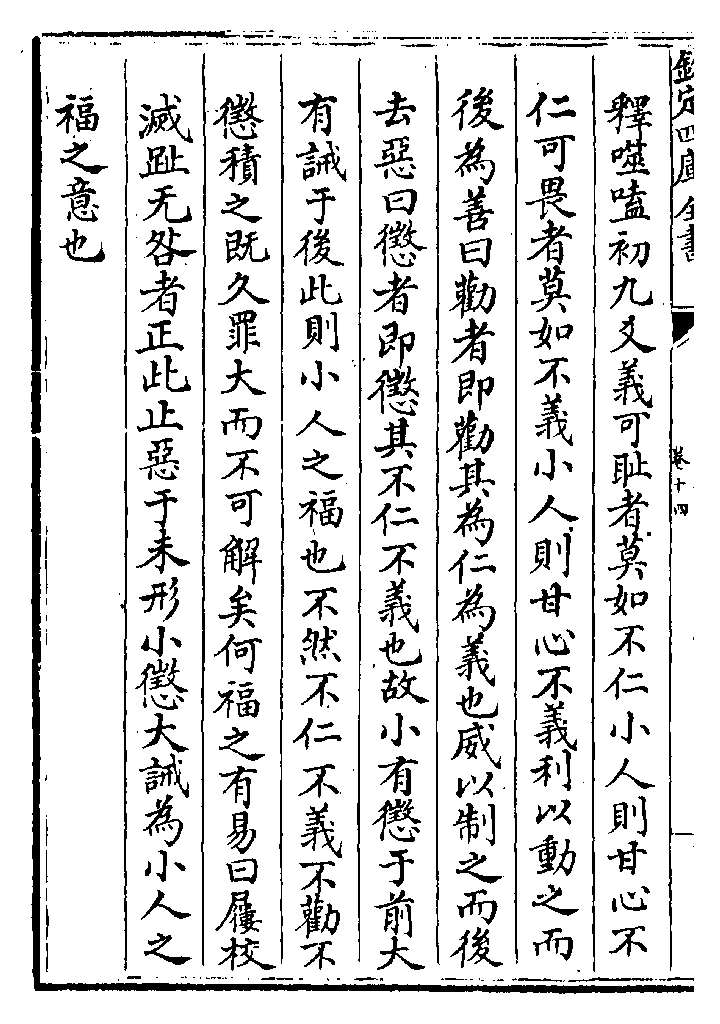 欽定四庫全書
卷十四
釋噬嗑初九爻義可耻者莫如不仁小人則甘心不
仁可畏者莫如不義小人則甘心不義利以動之而
後為善曰勸者即勸其為仁為義也威以制之而後
去惡曰懲者即懲其不仁不義也故小有懲于前大
有誡于後此則小人之福也不然不仁不義不勸不
懲積之既久罪大而不可解矣何福之有易曰屨校
滅趾无咎者正此止惡于未形小懲大誡為小人之
福之意也